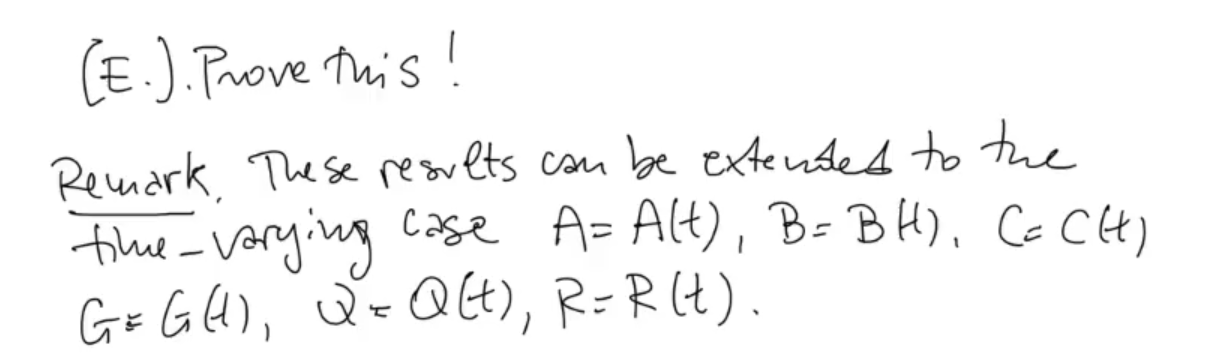 (E.). Prove this!
Remark. These results can be extended to the
time-varying case A = A(t), B = B(t), C = C(t)
G = G(t), Q = Q(t), R = R(t).